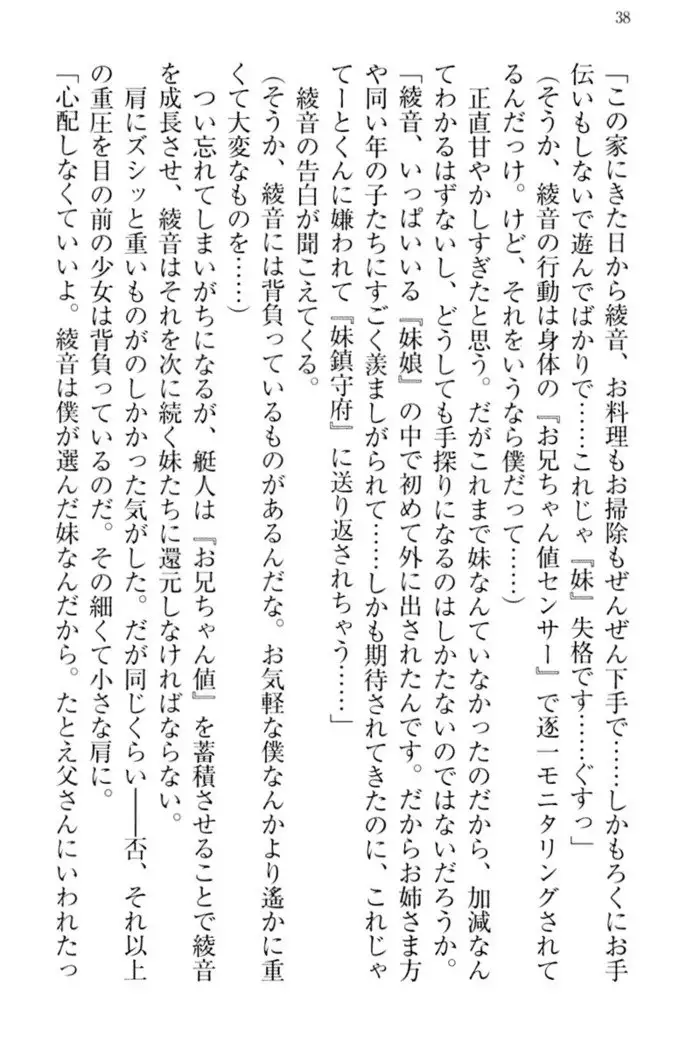 38
「この家にきた日から綾音、お料理もお掃除もぜんぜん下手で……しかもろくにお手
伝いもしないで遊んでばかりで……これじゃ『妹』失格です……ぐすっ」
(そうか、綾音の行動は身体の『お兄ちゃん値センサー』で逐一モニタリングされて
るんだっけ。けど、それをいうなら僕だって……)
正直甘やかしすぎたと思う。だがこれまで妹なんていなかったのだから、加減なん
てわかるはずないし、どうしても手探りになるのはしかたないのではないだろうか。
「綾音、いっぱいいる『妹娘』の中で初めて外に出されたんです。だからお姉さま方
や同い年の子たちにすごく羨ましがられて……しかも期待されてきたのに、これじゃ
てーとくんに嫌われて『妹鎮守府』に送り返されちゃう……」
綾音の告白が聞こえてくる。
(そうか、綾音には背負っているものがあるんだな。お気軽な僕なんかより遙かに重
くて大変なものを……)
つい忘れてしまいがちになるが、艇人は『お兄ちゃん値』を蓄積させることで綾音
を成長させ、綾音はそれを次に続く妹たちに還元しなければならない。
肩にズシッと重いものがのしかかった気がした。だが同じくらい――否、それ以上
の重圧を目の前の少女は背負っているのだ。その細くて小さな肩に。
「心配しなくていいよ。綾音は僕が選んだ妹なんだから。たとえ父さんにいわれたっ